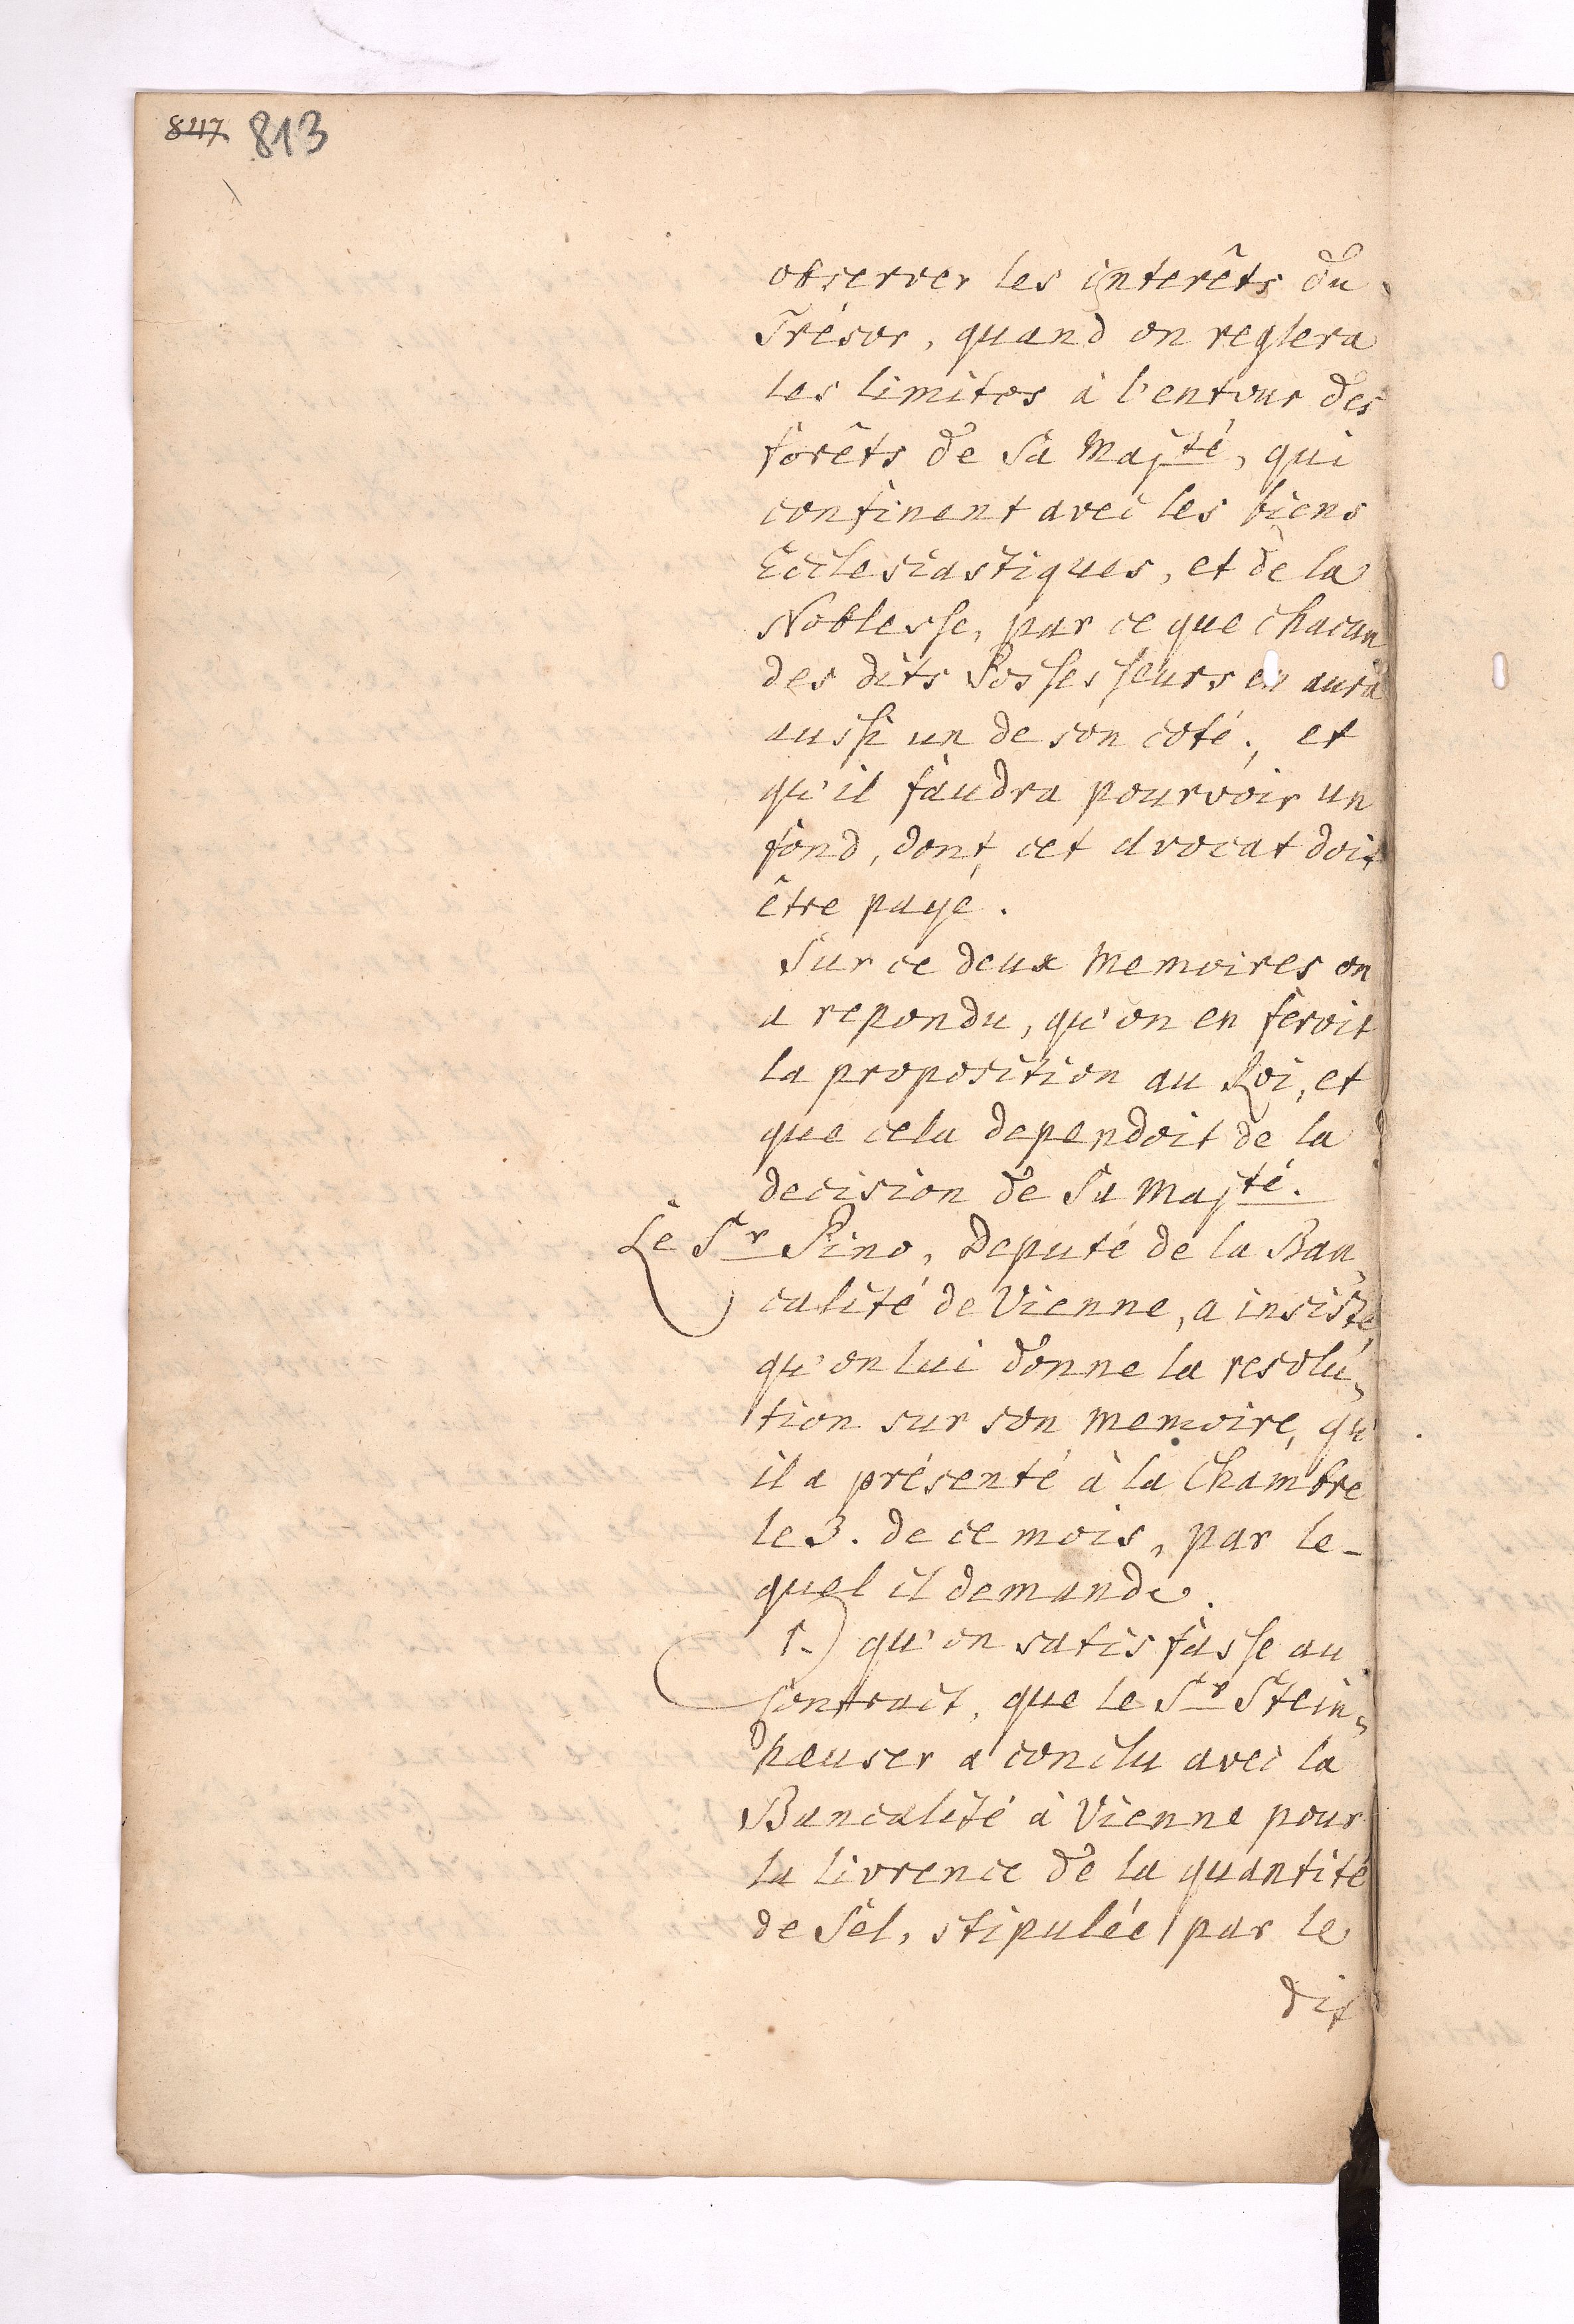 847 813
observer les interêts du
Trésor, quand on reglera
les limites à l'entour des
forêts de Sa Majté, qui
confinent avec les biens
Ecclesiastiques, et de la
Noblesse, par ce que chacun
des dits Possesseurs en aura
aussi un de son coté; et
qu'il faudra pourvoir un
fond, dont cet Avocat doit
être payé.
Sur ce deux Memoires on
a repondu, qu'on en feroit
la proposition au Roi, et
que cela dependoit de la
decision de Sa Majté.
Le Sr Pino, Deputé de la Ban„
calité de Vienne, a insisté,
qu'on lui donne la resolu„
tion sur son memoire, qu'
il a présenté à la Chambre
le 3. de ce mois, par le-
quel il demande.
1.) qu'on satisfasse au
Contract, que le Sr Stein„
hauser a conclu avec la
Bancalité à Vienne pour
la livrence de la quantité
de Sel, stipulée par le
dit